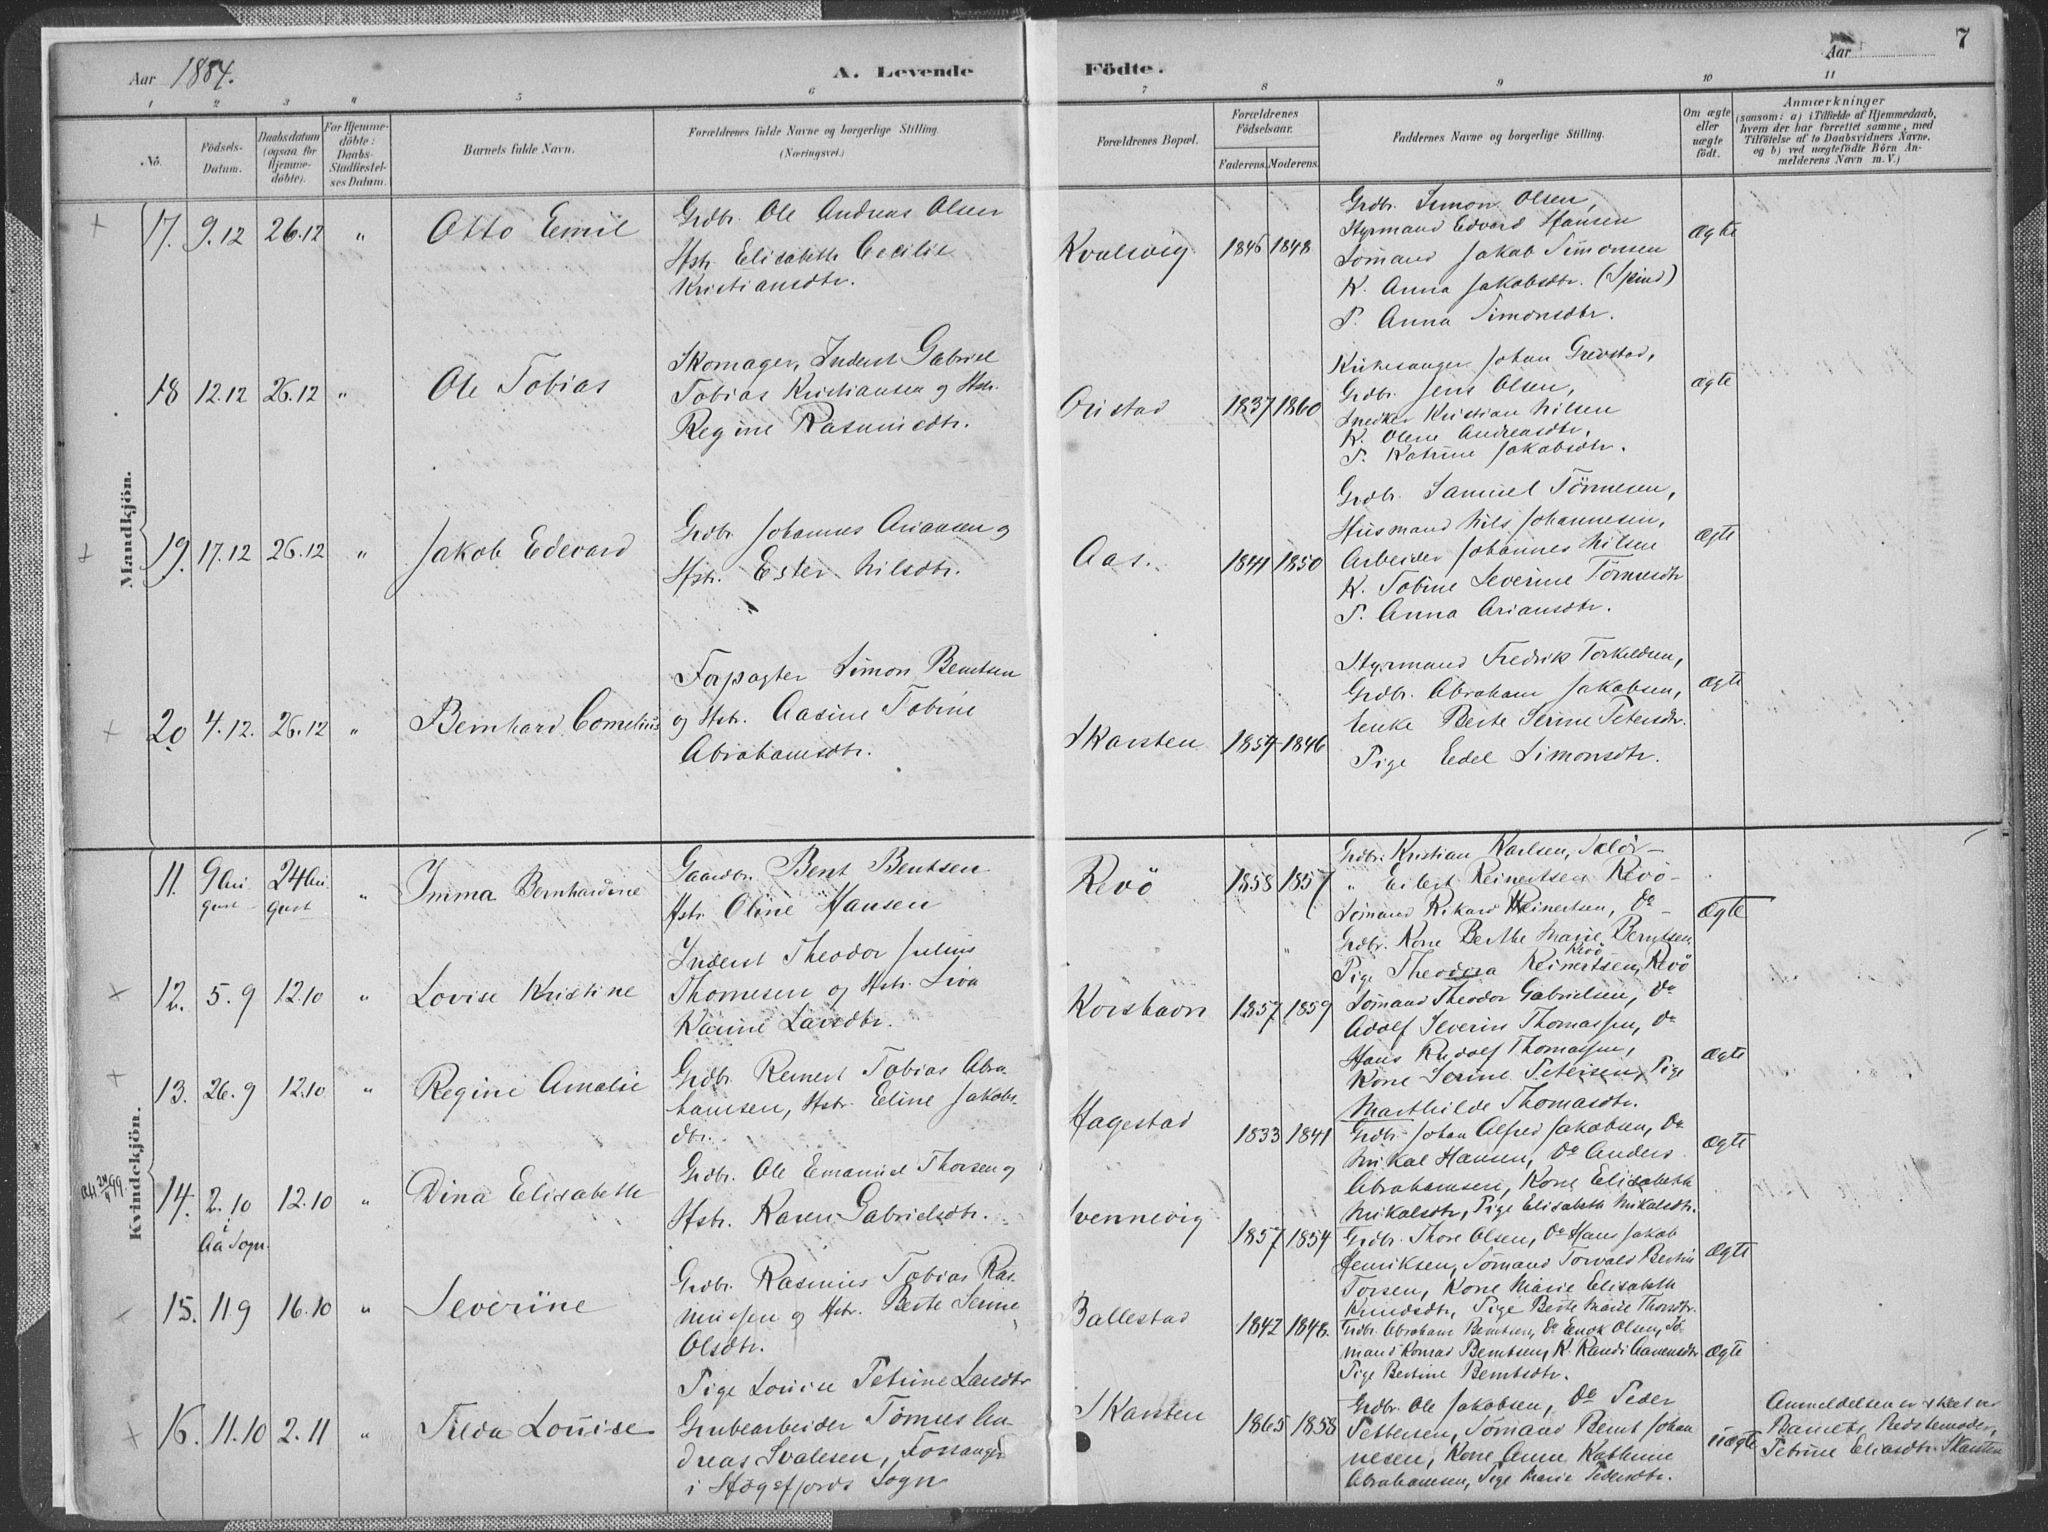 Aar 1884.
A. Levende
Födte.
Aar
7
1 2 3 4 5 6 7 8 9 10 11
No.
Födsels-Datum.
Daabsdatum (ogsaa for Hjemme-døbte).
For Hjemme-döbte: Daabs-Stadfæstel-ses Datum.
Barnets fulde Navn.
Forældrenes fulde Navne og borgerlige Stilling.
(Næringsvei.)
Forældrenes Bopæl.
Forældrenes Födselsaar.
Faderens. Moderens.
Faddernes Navne og borgerlige Stilling.
Om ægte eller uægte födt.
Anmærkninger
(saasom: a) i Tilfælde af Hjemmedaab,
hvem der har forrettet samme, med
Tilföielse af to Daabsvidners Navne,
og b) ved uægtefödte Börn An-
melderens Navn m. V.)
Mandkjön.
17. 9.12 26.12 " Otto Emil
Grdbr. Ole Andreas Olsen
Hstr. Elisabeth Cecilie
Kristiansdtr.
Kvalsvig 1846 1848
Grdbr. Simon Olsen,
Styrmand Edvard Hansen
Sömand Jakob Simonsen
K. Anna Jakobsdtr. (Spind)
P. Anna Simonsdtr.
ægte
18 12.12 26.12 " Ole Tobias
Skomager, Inderst Gabriel
Tobias Kristiansen og Hstr.
Regine Rasmusdtr.
Öristad 1837 1860
Kirkesanger Johan Grevstad,
Grdbr. Jens Olsen,
Snedker Kristian Nilsen
K. Olene Andreasdtr.
P. Katrine Jakobsdtr.
ægte
19. 17.12 26.12 " Jakob Edevard
Grdbr. Johannes Ariansen og
Hstr. Ester Nilsdtr.
Aas. 1841 1850
Grdbr. Samuel Tönnesen,
Husmand Nils Johannesen,
Arbeider Johannes Nilsen
K. Tobine Severine Tönnesdtr
P. Anna Ariansdtr.
ægte
20. 4.12. 26.12 " Bernhard Cornelius
Forpagter Simon Berntsen
og Hstr. Aasine Tobine
Abrahamsdtr.
Skarsten 1854 1846
Styrmand Fredrik Torkildsen,
Grdbr. Abraham Jakobsen,
Enke Berte Serine Petersdtr.
Pige Edel Simonsdtr.
ægte
Kvindekjön.
11. 9 August 24 August " Imma Bernhardine
Gaardbr. Bent Bentsen
Hstr. Oline Hansen
Revö 1858 1857
Grdbr. Kristian Karlsen, Selör
" Eilert Reinertsen Revö
Sömand Rikard Reinertsen, Do
Grdbr. Kone Berthe Marie Berntsen, Revö
Pige Theodora Reinertsen, Revö
ægte
12. 5.9 12.10 " Lovise Kristine
Inderst Theodor Julius
Thomesen og Hstr. Siva
Karine Larsdtr.
Korshavn 1857 1859
Sömand Theodor Gabrielsen, Do
Adolf Severin Thomassen, Do
Hans Rudolf Thomassen,
Kone Serine Petersen, Pige
Marthilde Thomasdtr.
ægte
13. 26.9 12.10 " Regine Amalie
Grdbr. Reinert Tobias Abra-
hamsen, Hstr. Eline Jakobs-
dtr.
Hagestad 1833 1841
Grdbr. Johan Alfred Jakobsen, Do
Mikal Hansen, Do Anders
Abrahamsen, Kone Elisabeth
Mikalsdtr, Pige Elisabeth Mikalsdtr.
ægte
14. 2.10 i Aa Sogn. 12.10 " Dina Elisabeth
Grdbr. Ole Emanuel Thorsen og
Hstr. Karen Gabrielsdtr.
Svennevig 1857 1854
Grdbr. Thore Olsen, Do Hans Jakob
Henriksen, Sömand Torvald Bertin
Torsen, Kone Marie Elisabeth
Knudsdtr, Pige Berte Marie Thorsdtr.
ægte
15. 11 9 16.10 " Severine
Grdbr. Rasmus Tobias Ras-
mussen og Hstr. Berte Serine
Olsdtr.
Ballestad 1842 1848.
Grdbr. Abraham Berntsen, Do Enok Olsen, Sö-
mand Konrad Berntsen, K. Randi Aanensdtr
Pige Bertine Berntsdtr.
ægte
16. 11.10 2.11 " Tilda Louise
Pige Louise Petrine Larsdtr
Grubearbeider Tönnes An-
dreas Svalesen, Fossanger
i Högsfjords Sogn
Skarsten 1865 1858
Grdbr. Ole Jakobsen, Do Peder
Pettersen, Sömand Bernt Johan
nesen, Kone Anne Kathrine
Abrahamsen, Pige Marie Pedersdtr.
uægte
Anmeldelsen er skeet ved
Barnets Bedstemoder,
Petrine Eliasdtr. Skarsten